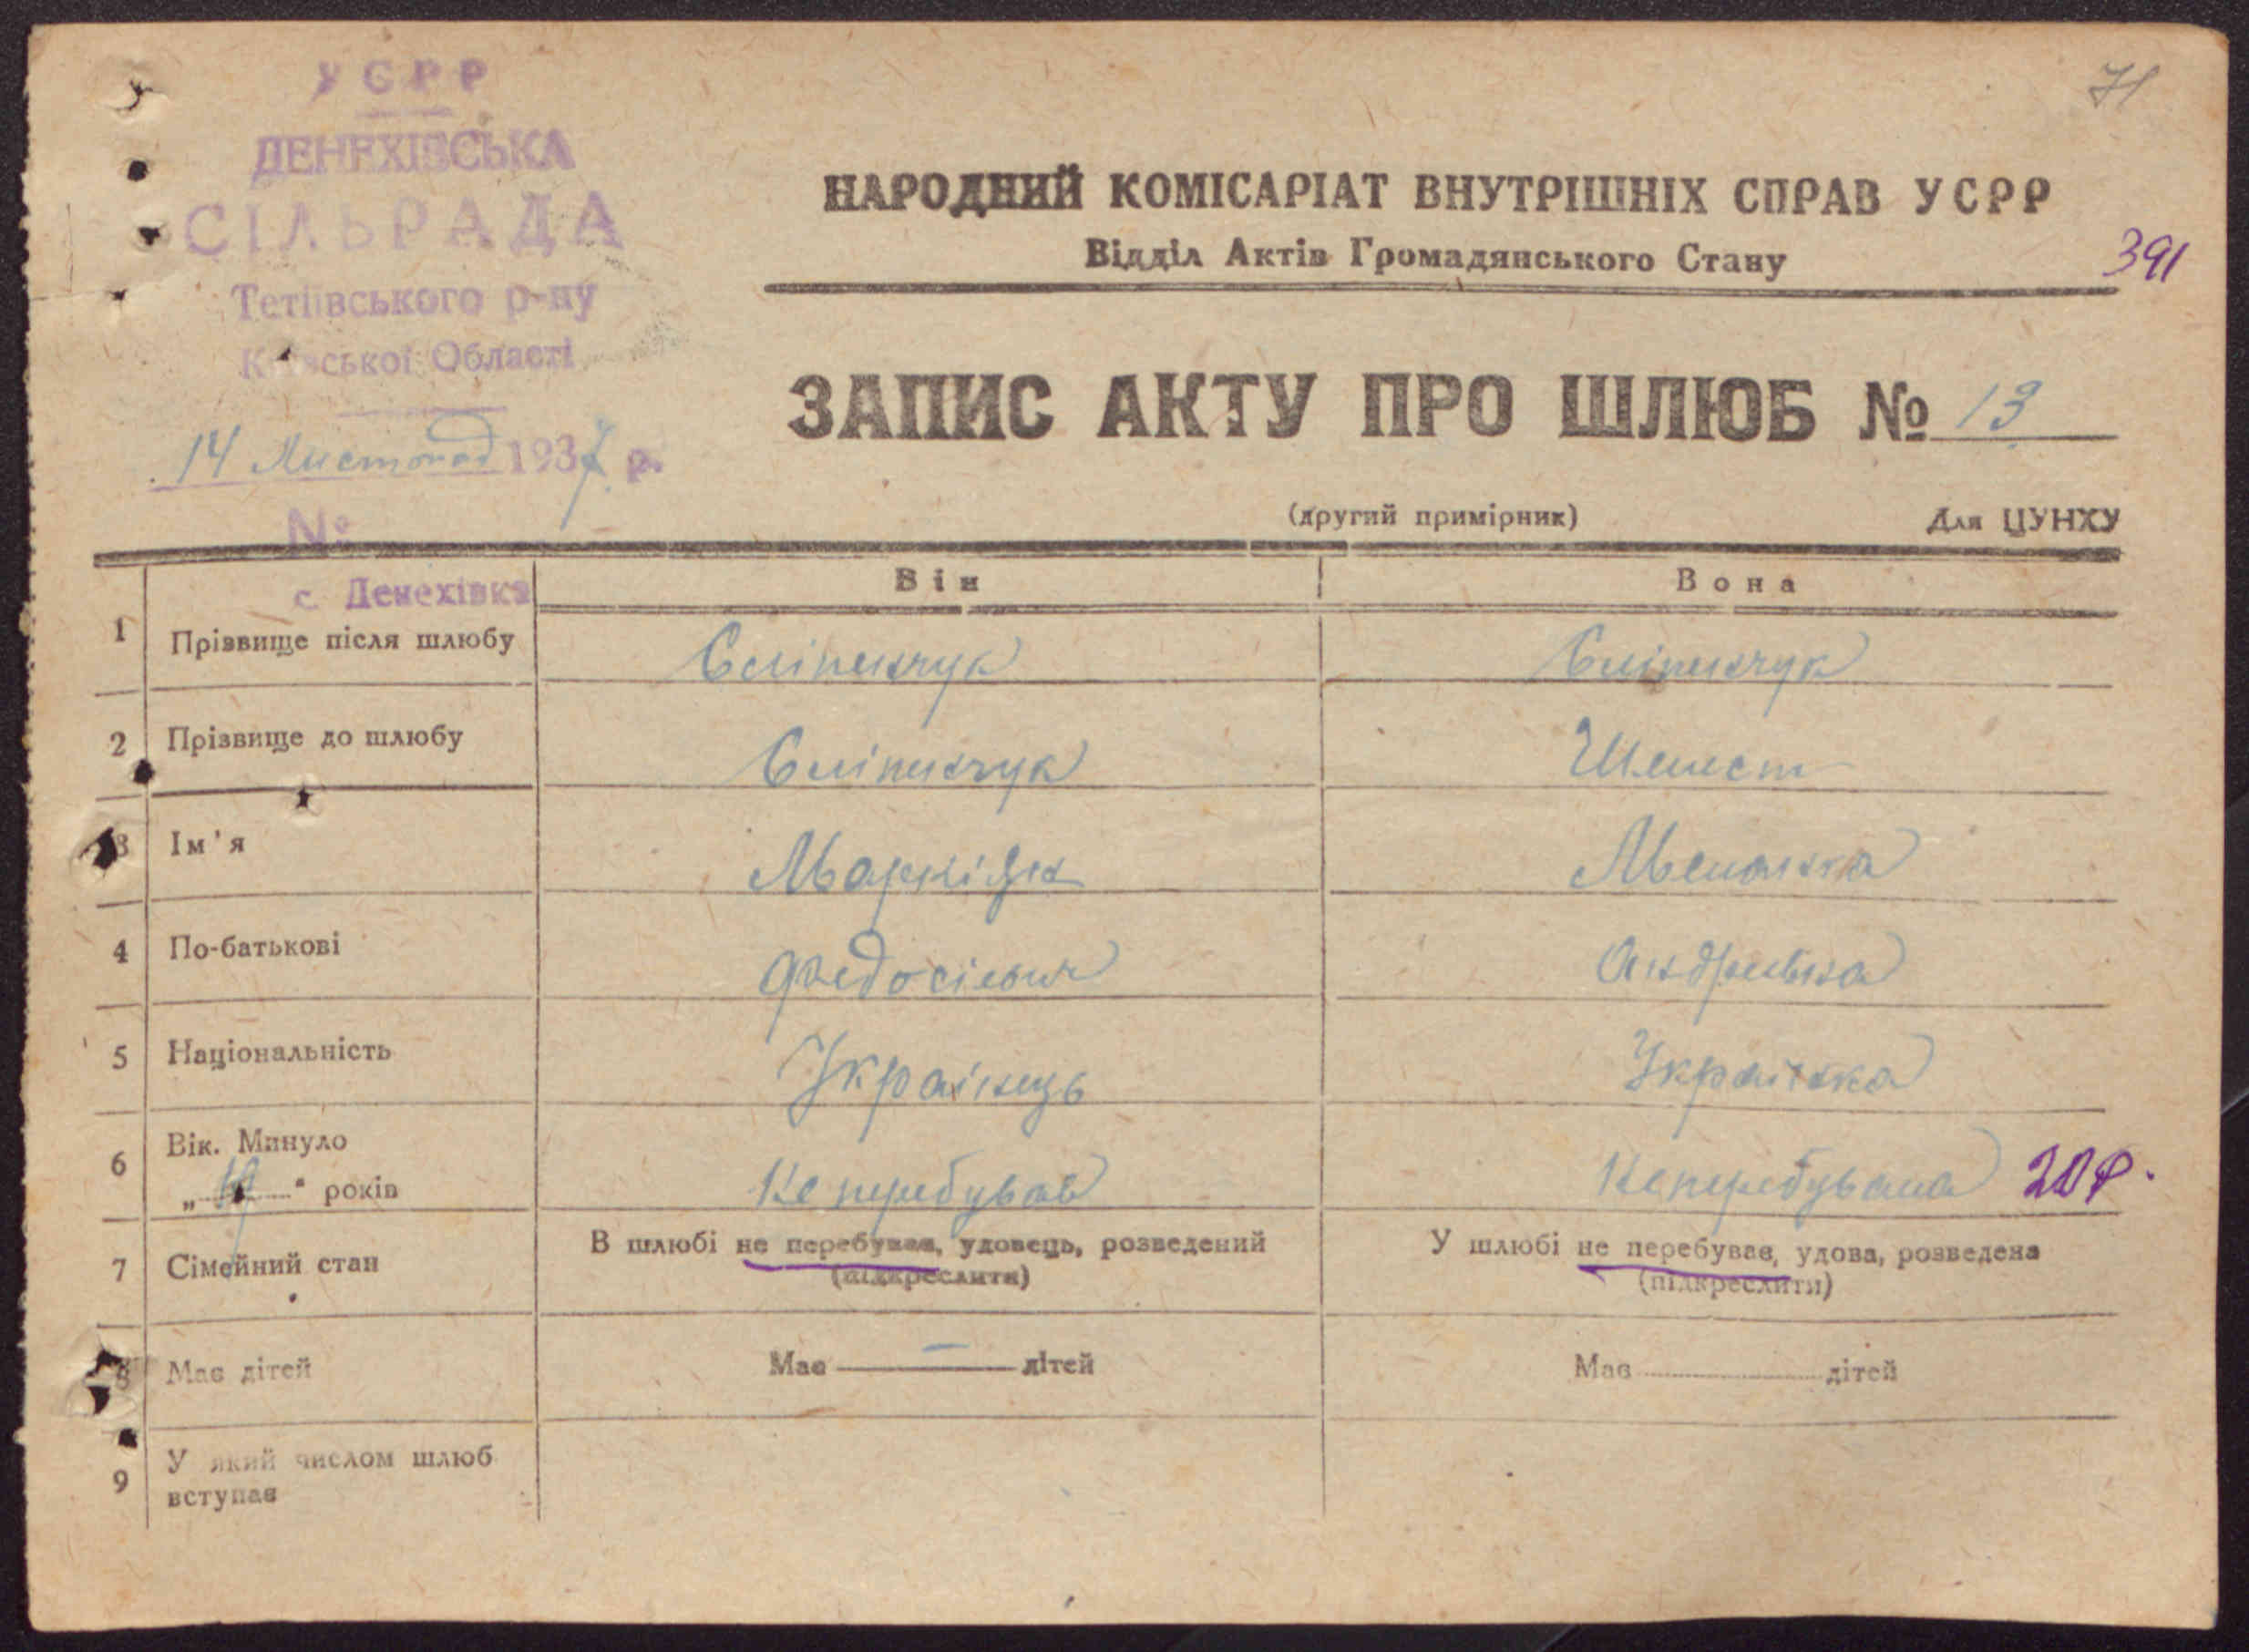 УСРР
ДЕНЕХІВСЬКА
СІЛЬРАДА
Тетіївського р-ну
Київської Області
14 Листопад 1937 р.
№
с. Денехівка
71
НАРОДНИЙ КОМІСАРІАТ ВНУТРІШНІХ СПРАВ УСРР
Відділ Актів Громадянського Стану
391
ЗАПИС АКТУ ПРО ШЛЮБ № 13
(другий примірник) Для ЦУНХУ
Він Вона
1 Прізвище після шлюбу Сліпенчук Сліпенчук
2 Прізвище до шлюбу Сліпенчук Шелест
3 Ім'я Маркіян Меланка
4 По-батькові Федосієвич Андріївна
5 Національність Українець Українка
6 Вік. Минуло
„19“ років Не перебував Не перебувала 20 р.
7 Сімейний стан В шлюбі не перебував, удовець, розведений У шлюбі не перебував, удова, розведена
(підкреслити) (підкреслити)
8 Має дітей Має — дітей Має дітей
9 У який числом шлюб
вступає